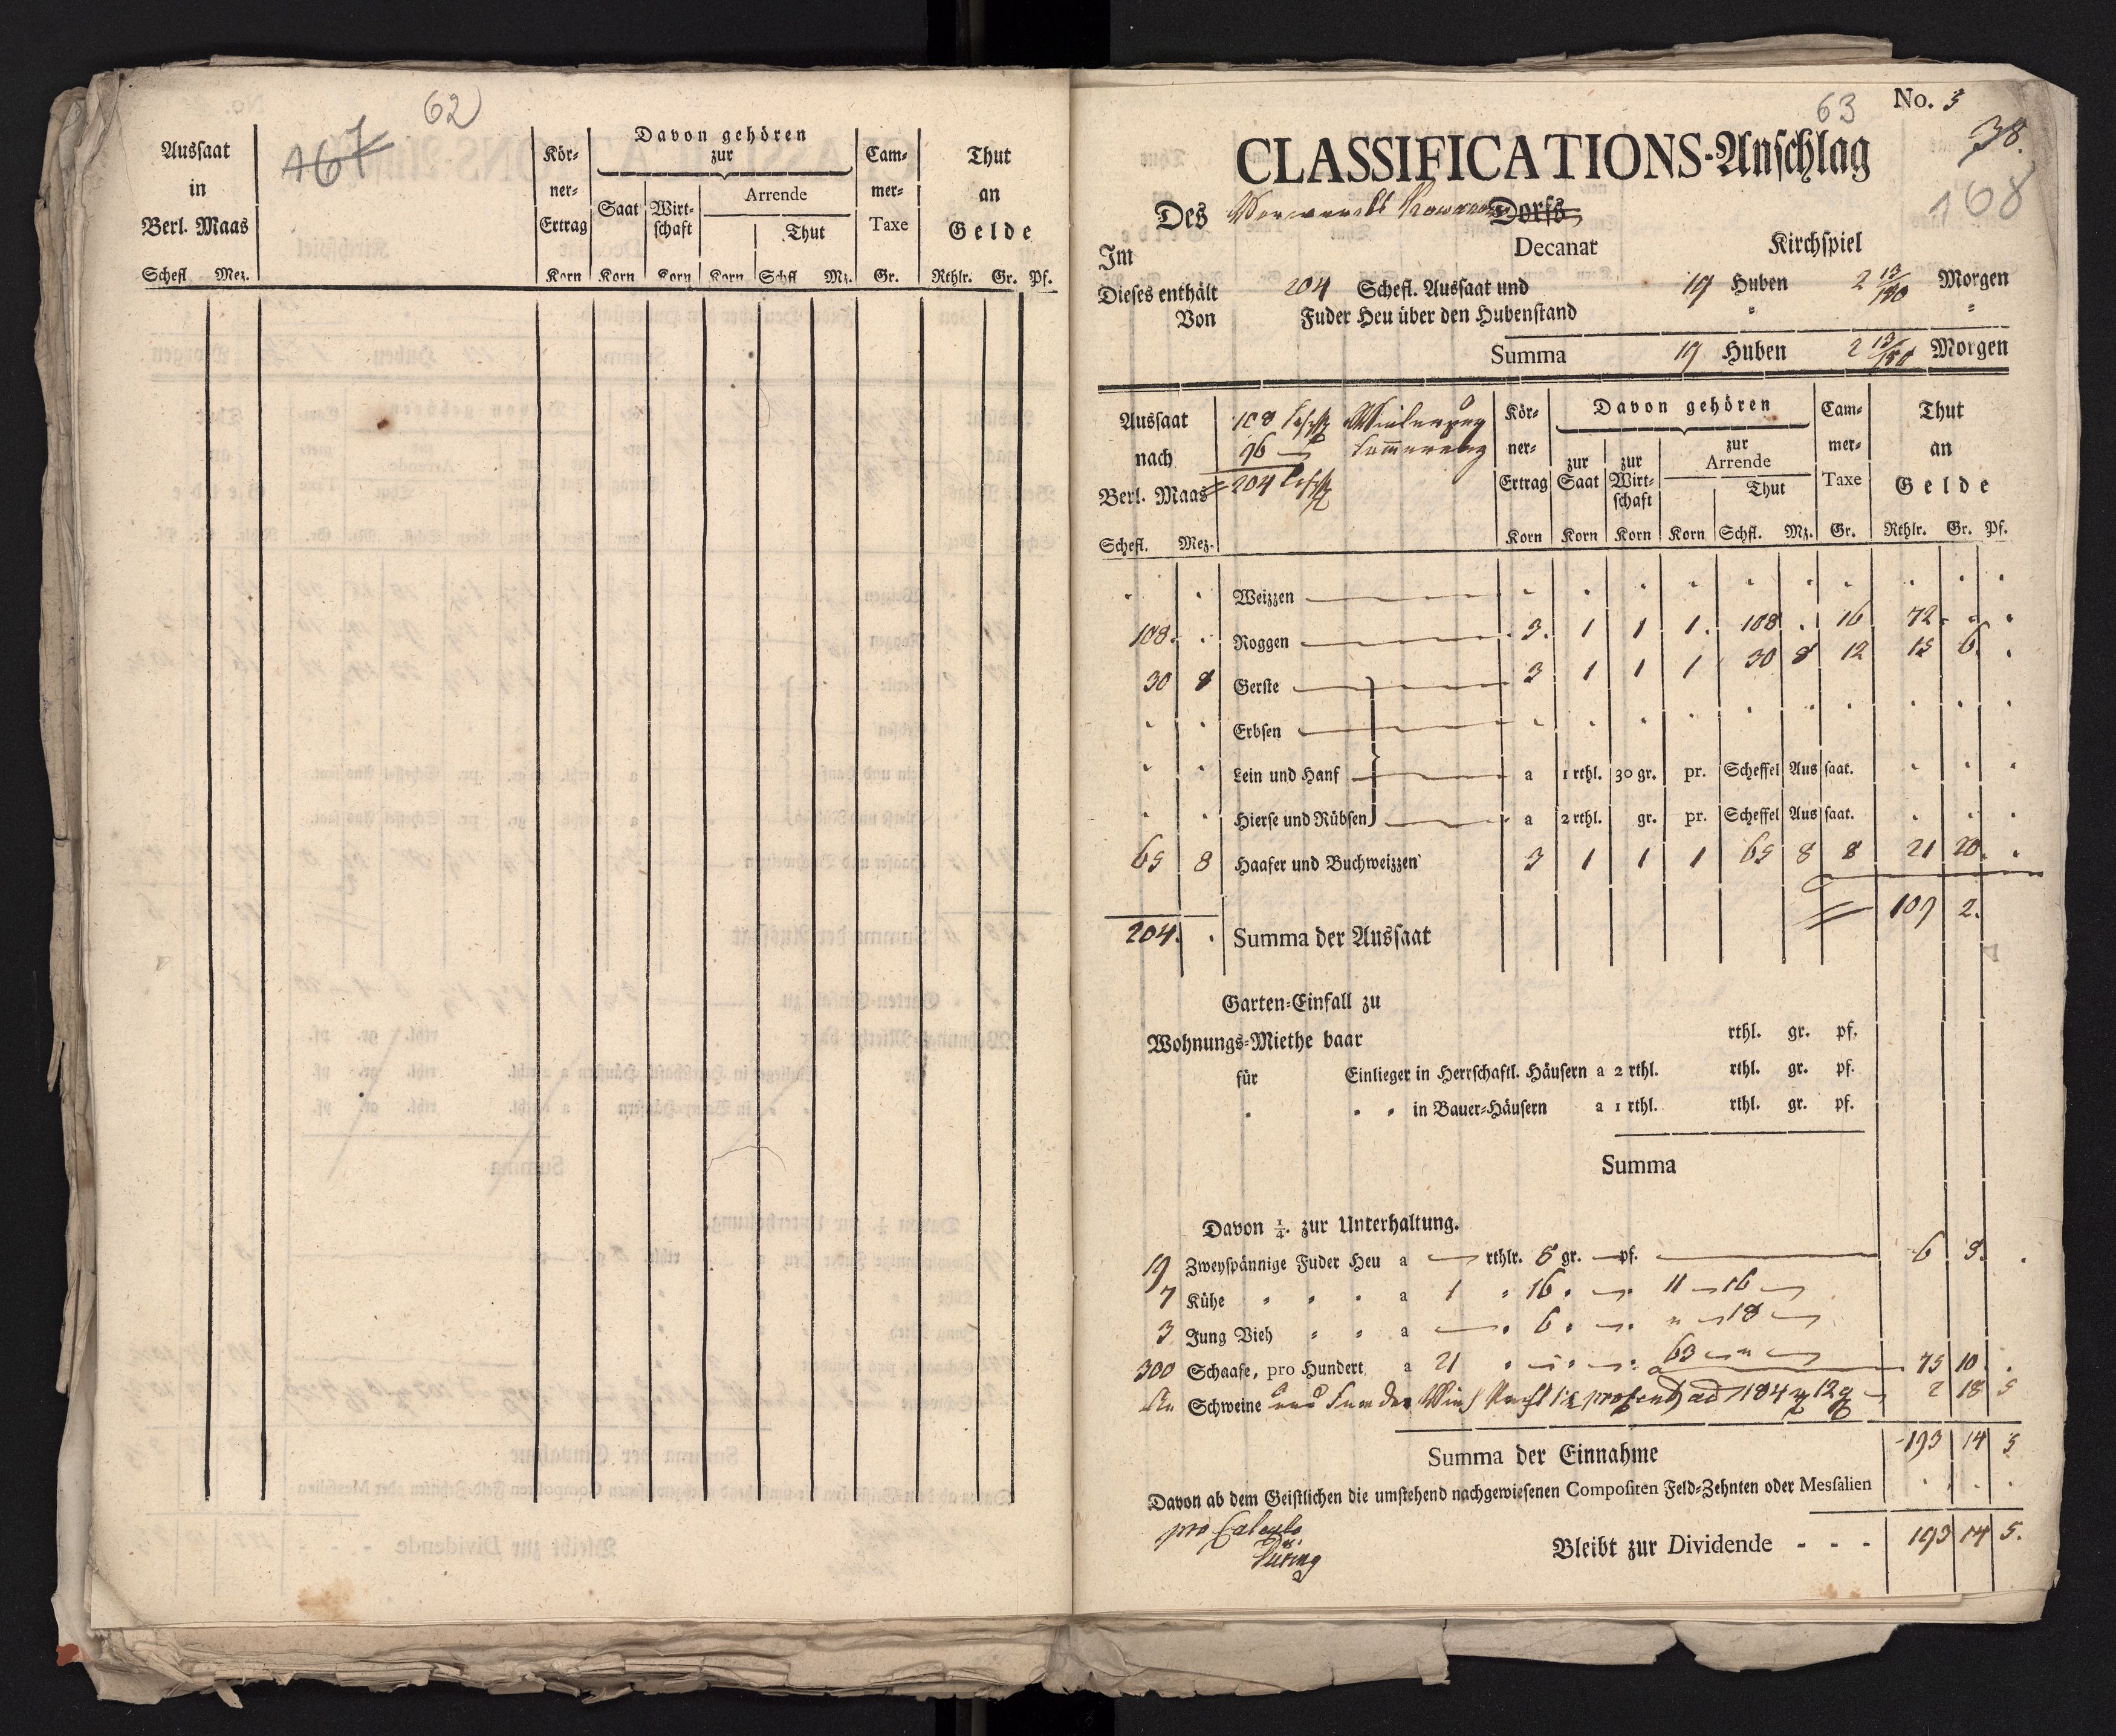 62
167
Aussaat
in
Berl. Maas
Schefl. Mez.
Kör-
ner-
Ertrag
Korn
Davon gehören
zur
Saat
Korn
Wirt-
schaft
Korn
Arrende
Thut
Korn Schfl Mz.
Cam-
mer-
Taxe
Gr.
Thut
an
Gelde
Rthlr. Gr. Pf.
63
No. 3
38.
168
CLASSIFICATIONS-Anschlag
Des Vorwercks Dorfs
Im Decanat Kirchspiel
Dieses enthält 204 Schefl. Aussaat und 19 Huben 2 13/180 Morgen
Von Fuder Heu über den Hubenstand " "
Summa 19 Huben 2 13/180 Morgen
Aussaat
nach
Berl. Maas
Schefl. Mez.
108 Schfl
96 —
204 Schfl
Kör-
ner-
Ertrag
Korn
Davon gehören
zur
Saat
Korn
zur
Wirt-
schaft
Korn
zur
Arrende
Thut
Korn Schfl. Mz.
Cam-
mer-
Taxe
Gr.
Thut
an
Gelde
Rthlr. Gr. Pf.
Weizzen
108. Roggen 3. 1 1 1. 108 . 16 72
30 8 Gerste 3 1 1 1 30 8 12 15 6.
Erbsen
Lein und Hanf a 1 rthl. 30 gr. pr. Scheffel Aus saat.
Hierse und Rübsen a 2 rthl. gr. pr. Scheffel Aus saat.
65 8 Haafer und Buchweizzen 3 1 1 1 65 8 8 21 20.
109 2.
204. Summa der Aussaat
Garten-Einfall zu
Wohnungs-Miethe baar rthl. gr. pf.
für Einlieger in Herrschaftl. Häusern a 2 rthl. rthl. gr. pf.
" " " in Bauer-Häusern a 1 rthl. rthl. gr. pf.
Summa
Davon ¼. zur Unterhaltung.
19 Zweyspännige Fuder Heu a — rthlr. 5 gr. — pf. 6 8.
7 Kühe " " " a 1 " 16 " — 11 — 16 —
3 Jung Vieh " " a — " 6 " — " — 18 —
300 Schaafe, pro Hundert a 21 " — " — 63 — " — 75 10.
Schweine 2 18 5
Summa der Einnahme 193 14 5
Davon ab dem Geistlichen die umstehend nachgewiesenen Compositen Feld-Zehnten oder Messalien
pro Calculo
Bleibt zur Dividende - - - 193 14 5.